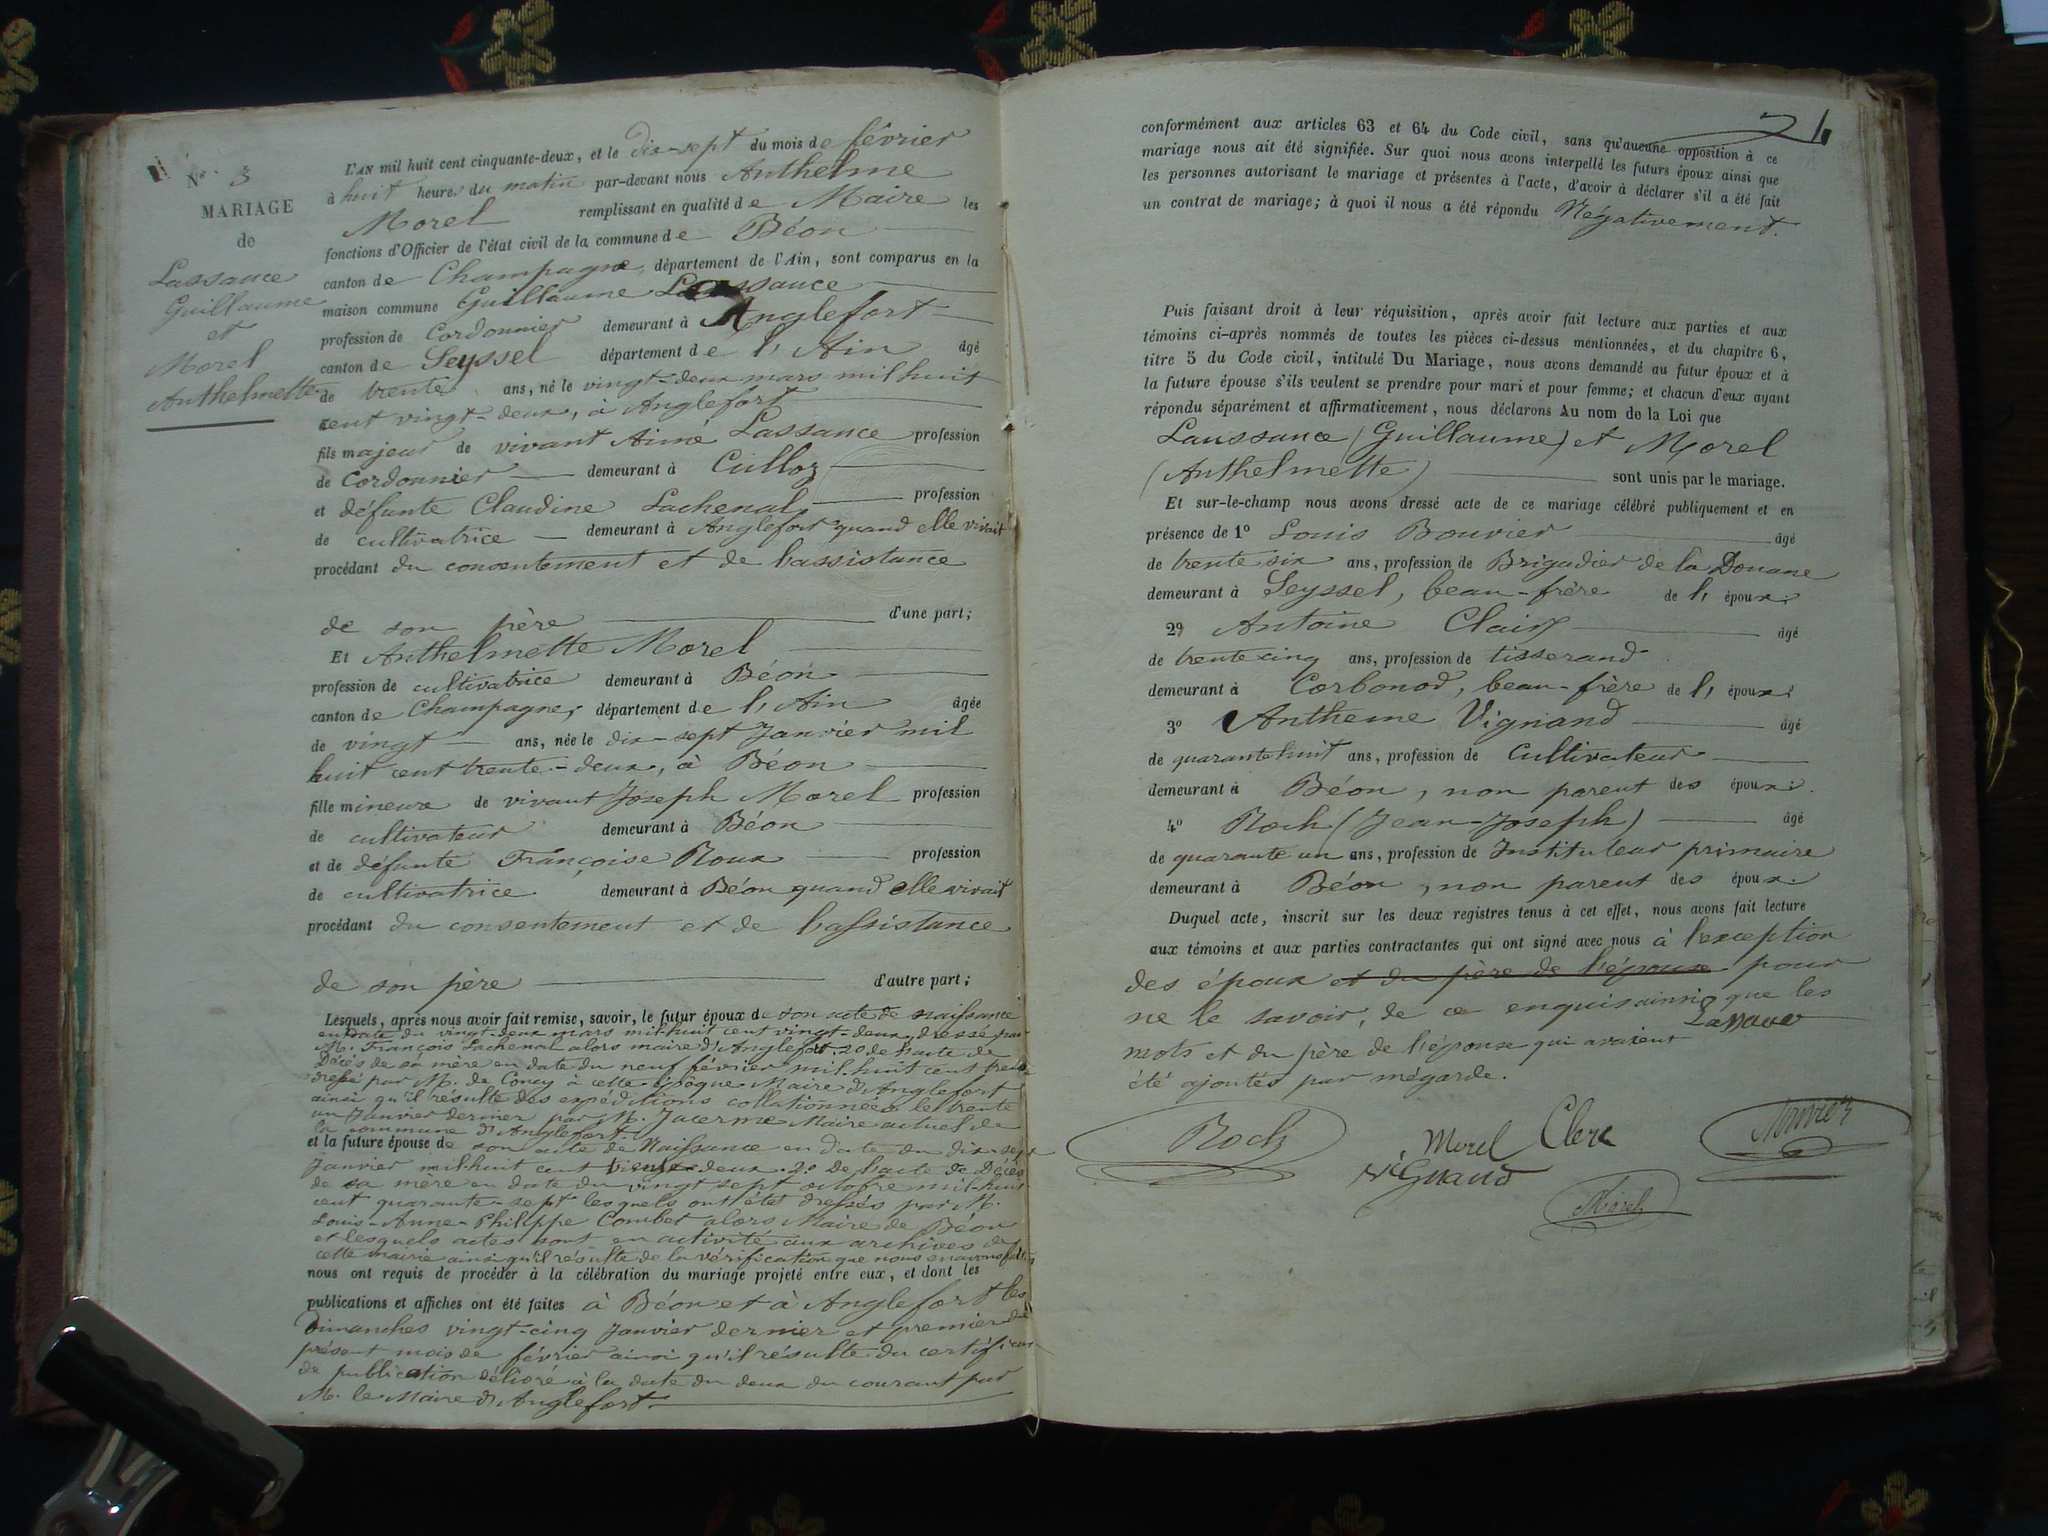 N° 3
MARIAGE
de
Lassance
Guillaume
et
Morel
Anthelmette
L'AN mil huit cent cinquante-deux, et le dix-sept du mois de février
à huit heures du matin par-devant nous Anthelme
Morel remplissant en qualité de Maire les
fonctions d'Officier de l'état civil de la commune de Béon
canton de Champagne, département de l'Ain, sont comparus en la
maison commune Guillaume Lassance
profession de Cordonnier demeurant à Anglefort
canton de Seyssel département de l'Ain âgé
de trente ans, né le vingt-deux mars mil huit
cent vingt-deux, à Anglefort
fils majeur de vivant Aimé Lassance profession
de Cordonnier demeurant à Culloz
et défunte Claudine Lachenal profession
de cultivatrice demeurant à Anglefort quand elle vivait
procédant du consentement et de l'assistance
de son père d'une part;
Et Anthelmette Morel
profession de cultivatrice demeurant à Béon
canton de Champagne, département de l'Ain âgée
de vingt ans, née le dix-sept Janvier mil
huit cent trente-deux, à Béon
fille mineure de vivant Joseph Morel profession
de cultivateur demeurant à Béon
et de défunte Françoise Roux profession
de cultivatrice demeurant à Béon quand elle vivait
procédant du consentement et de l'assistance
de son père d'autre part;
Lesquels, après nous avoir fait remise, savoir, le futur époux de son acte de naissance
en date du vingt-deux mars mil huit cent vingt-deux, dressé par
M. François Lachenal alors maire d'Anglefort. 2° de l'acte de
Décès de sa mère en date du neuf février mil-huit cent trente
dressé par M. de Coucy à cette époque Maire d'Anglefort
ainsi qu'il résulte des expéditions collationnées le trente
un Janvier dernier par M. Jacerme Maire actuel de
la commune d'Anglefort
et la future épouse de son acte de Naissance en date du dix-sept
Janvier mil-huit cent trente-deux. 2° De l'acte de Décès
de sa mère en date du vingt sept octobre mil-huit
cent quarante-sept lesquels ont été dressés par M.
Louis-Anne-Philippe Combet alors Maire de Béon
et lesquels actes sont en activité aux archives de
cette mairie ainsi qu'il résulte de la vérification que nous en avons faite,
nous ont requis de procéder à la célébration du mariage projeté entre eux, et dont les
publications et affiches ont été faites à Béon et à Anglefort les
Dimanches vingt-cinq Janvier dernier et premier du
présent mois de février ainsi qu'il résulte du certificat
de publication délivré à la date du deux du courant par
M. le Maire d'Anglefort.
conformément aux articles 63 et 64 du Code civil, sans qu'aucune opposition à ce
mariage nous ait été signifiée. Sur quoi nous avons interpellé les futurs époux ainsi que
les personnes autorisant le mariage et présentes à l'acte, d'avoir à déclarer s'il a été fait
un contrat de mariage; à quoi il nous a été répondu Négativement.
Puis faisant droit à leur réquisition, après avoir fait lecture aux parties et aux
témoins ci-après nommés de toutes les pièces ci-dessus mentionnées, et du chapitre 6,
titre 5 du Code civil, intitulé Du Mariage, nous avons demandé au futur époux et à
la future épouse s'ils veulent se prendre pour mari et pour femme; et chacun d'eux ayant
répondu séparément et affirmativement, nous déclarons Au nom de la Loi que
Laussance (Guillaume) et Morel
(Anthelmette) sont unis par le mariage.
Et sur-le-champ nous avons dressé acte de ce mariage célébré publiquement et en
présence de 1° Louis Bouvier âgé
de trente six ans, profession de Brigadier de la Douane
demeurant à Seyssel, beau-frère de l'époux.
2° Antoine Clair âgé
de trente cinq ans, profession de tisserand
demeurant à Corbonod, beau-frère de l'époux.
3° Antheme Vignand âgé
de quarante huit ans, profession de Cultivateur
demeurant à Béon, non parent des époux.
4° Roch (Jean-Joseph) âgé
de quarante un ans, profession de Instituteur primaire
demeurant à Béon, non parent des époux.
Duquel acte, inscrit sur les deux registres tenus à cet effet, nous avons fait lecture
aux témoins et aux parties contractantes qui ont signé avec nous à l'exception
des époux et du père de l'épouse pour
ne le savoir, de ce enquis ainsi que les
mots et du père de l'épouse qui avaient Lassance
été ajoutés par mégarde.
Roch Morel Clerc Bouvier
ViGnand
Morel